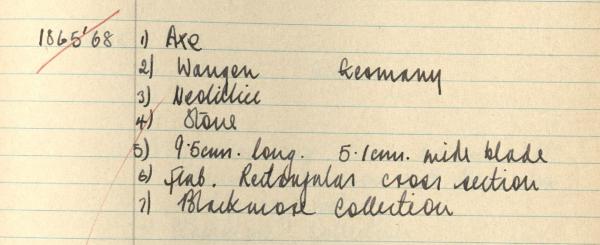 1865'68 1) Axe
2) Wangen Germany
3) Neolithic
4) Stone
5) 9.5cms. long. 5.1cms. wide blade
6) Rectangular cross section
7) Blackmore Collection